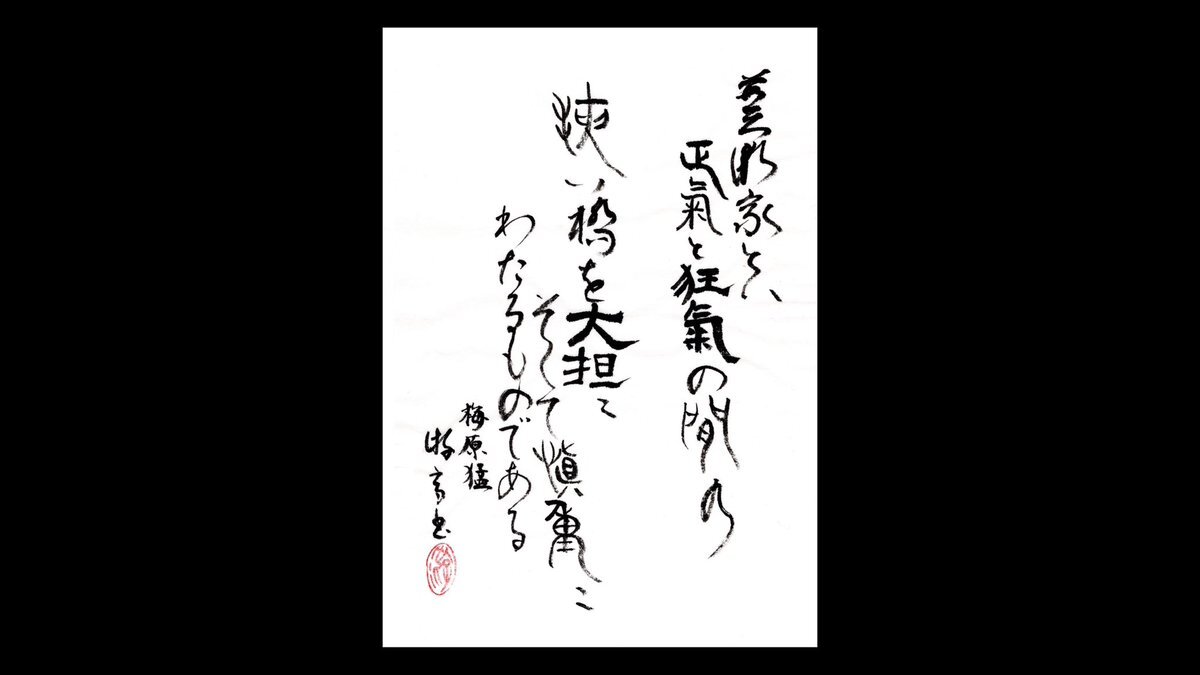 芸術家とハ
正氣と狂氣の間の
狭い橋を大担に
そして慎重に
わたるものである
梅原猛
書